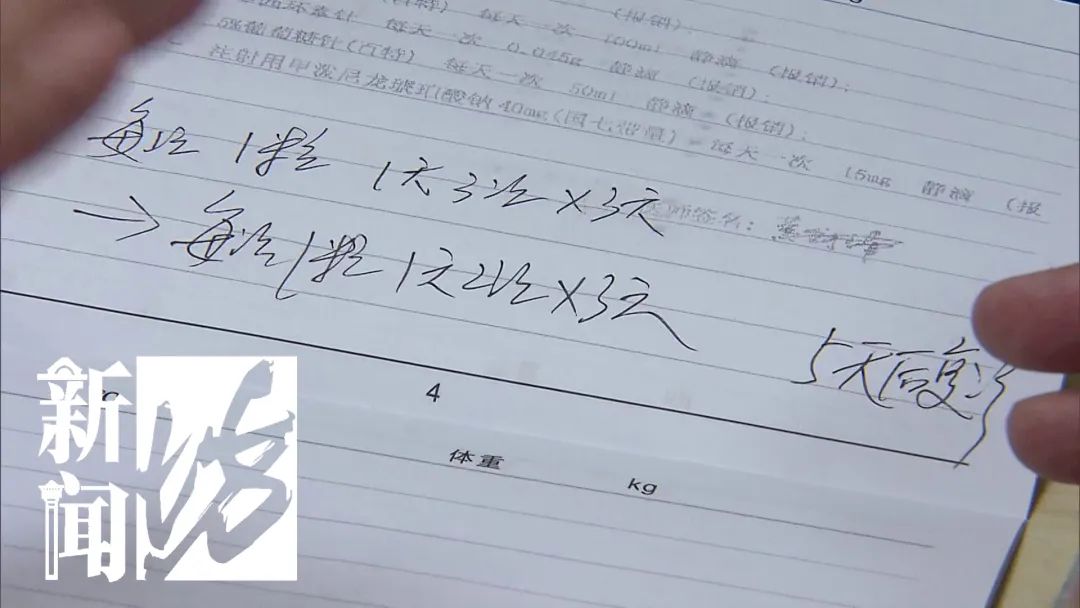 每天一次 100ml 静滴 (报销);
每天一次 0.045g 静滴 (报销);
5%葡萄糖针(百特) 每天一次 50ml 静滴 (报销);
注射用甲泼尼龙琥珀酸钠40mg 每天一次 15mg 静滴 (报
医师签名:
每次1粒 1天3次×3天
→每次1粒 1天2次×3天
5天后复诊
4
体重
kg
新闻坊